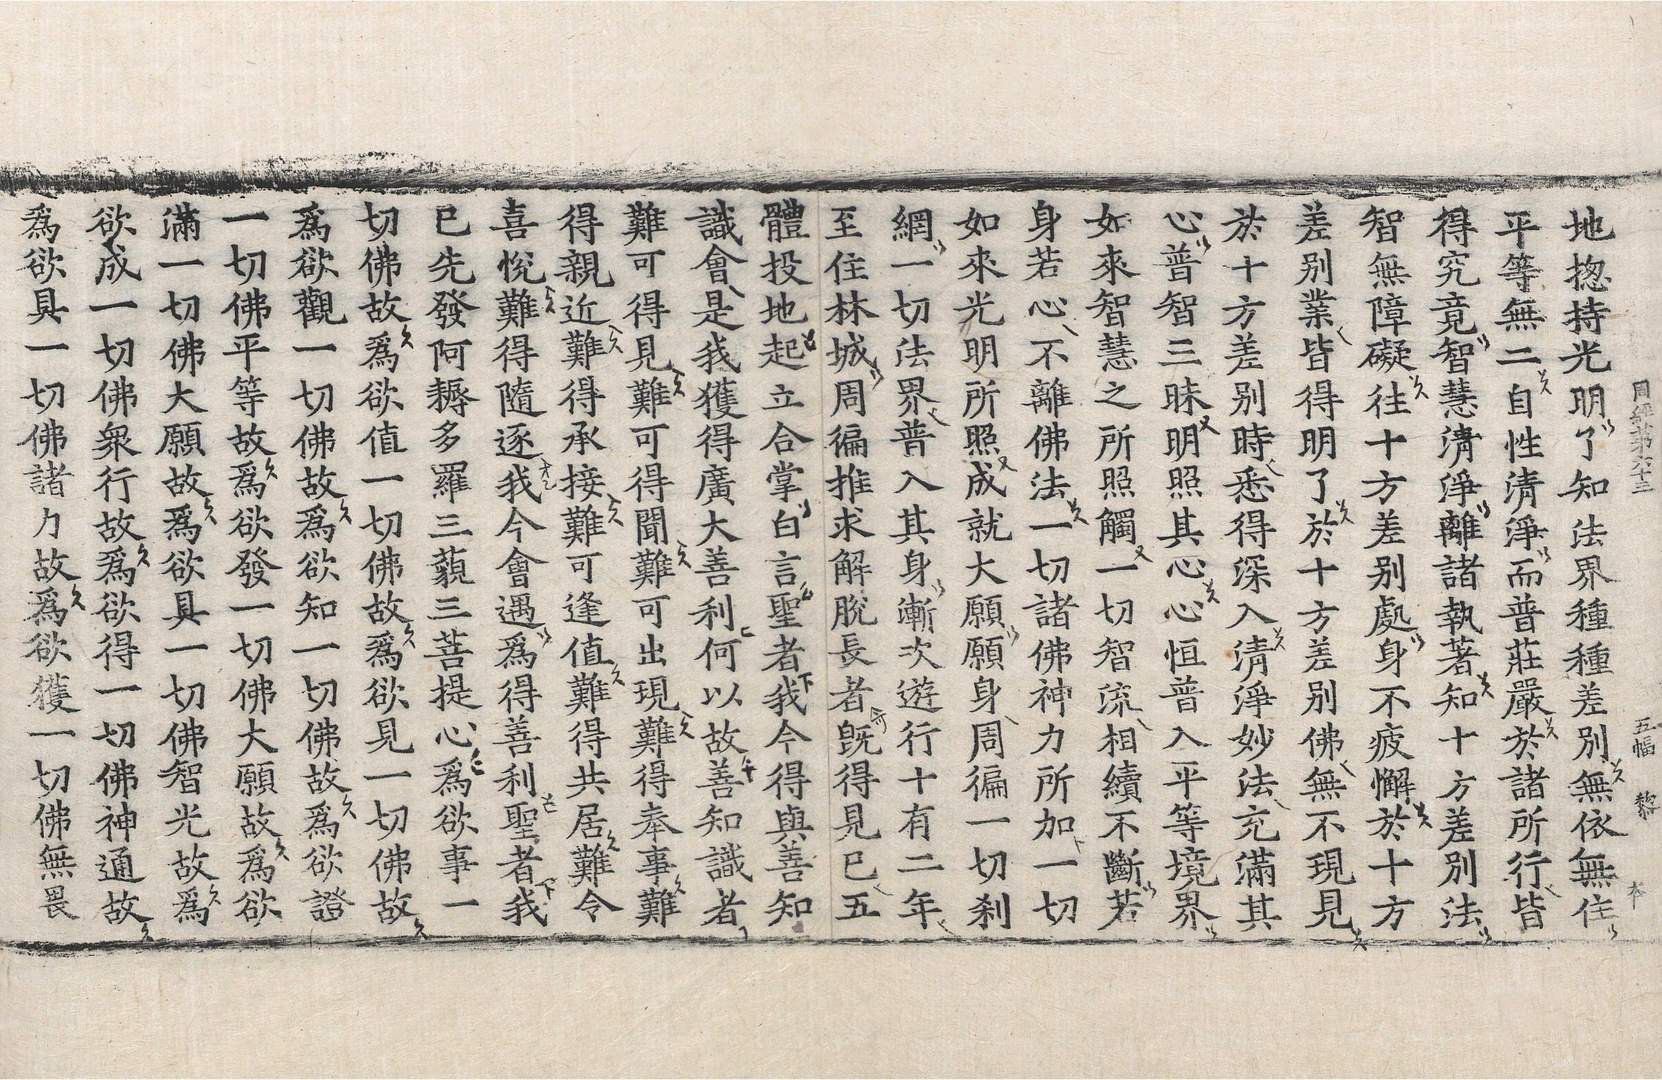 周經第六十三 五幅 黎
地揔持光明了知法界種種差別無依無住
平等無二自性清淨而普莊嚴於諸所行皆
得究竟智慧清淨離諸執著知十方差別法
智無障礙往十方差別處身不疲懈於十方
差別業皆得明了於十方差別佛無不現見
於十方差別時悉得深入清淨妙法充滿其
心普智三昧明照其心心恒普入平等境界
如來智慧之所照觸一切智流相續不斷若
身若心不離佛法一切諸佛神力所加一切
如來光明所照成就大願願身周徧一切刹
網一切法界普入其身漸次遊行十有二年
至住林城周徧推求解脫長者旣得見已五
體投地起立合掌白言聖者我今得與善知
識會是我獲得廣大善利何以故善知識者
難可得見難可得聞難可出現難得奉事難
得親近難得承接難可逢值難得共居難令
喜悅難得隨逐我今會遇爲得善利聖者我
已先發阿耨多羅三藐三菩提心爲欲事一
切佛故爲欲值一切佛故爲欲見一切佛故
爲欲觀一切佛故爲欲知一切佛故爲欲證
一切佛平等故爲欲發一切佛大願故爲欲
滿一切佛大願故爲欲具一切佛智光故爲
欲成一切佛衆行故爲欲得一切佛神通故
爲欲具一切佛諸力故爲欲獲一切佛無畏